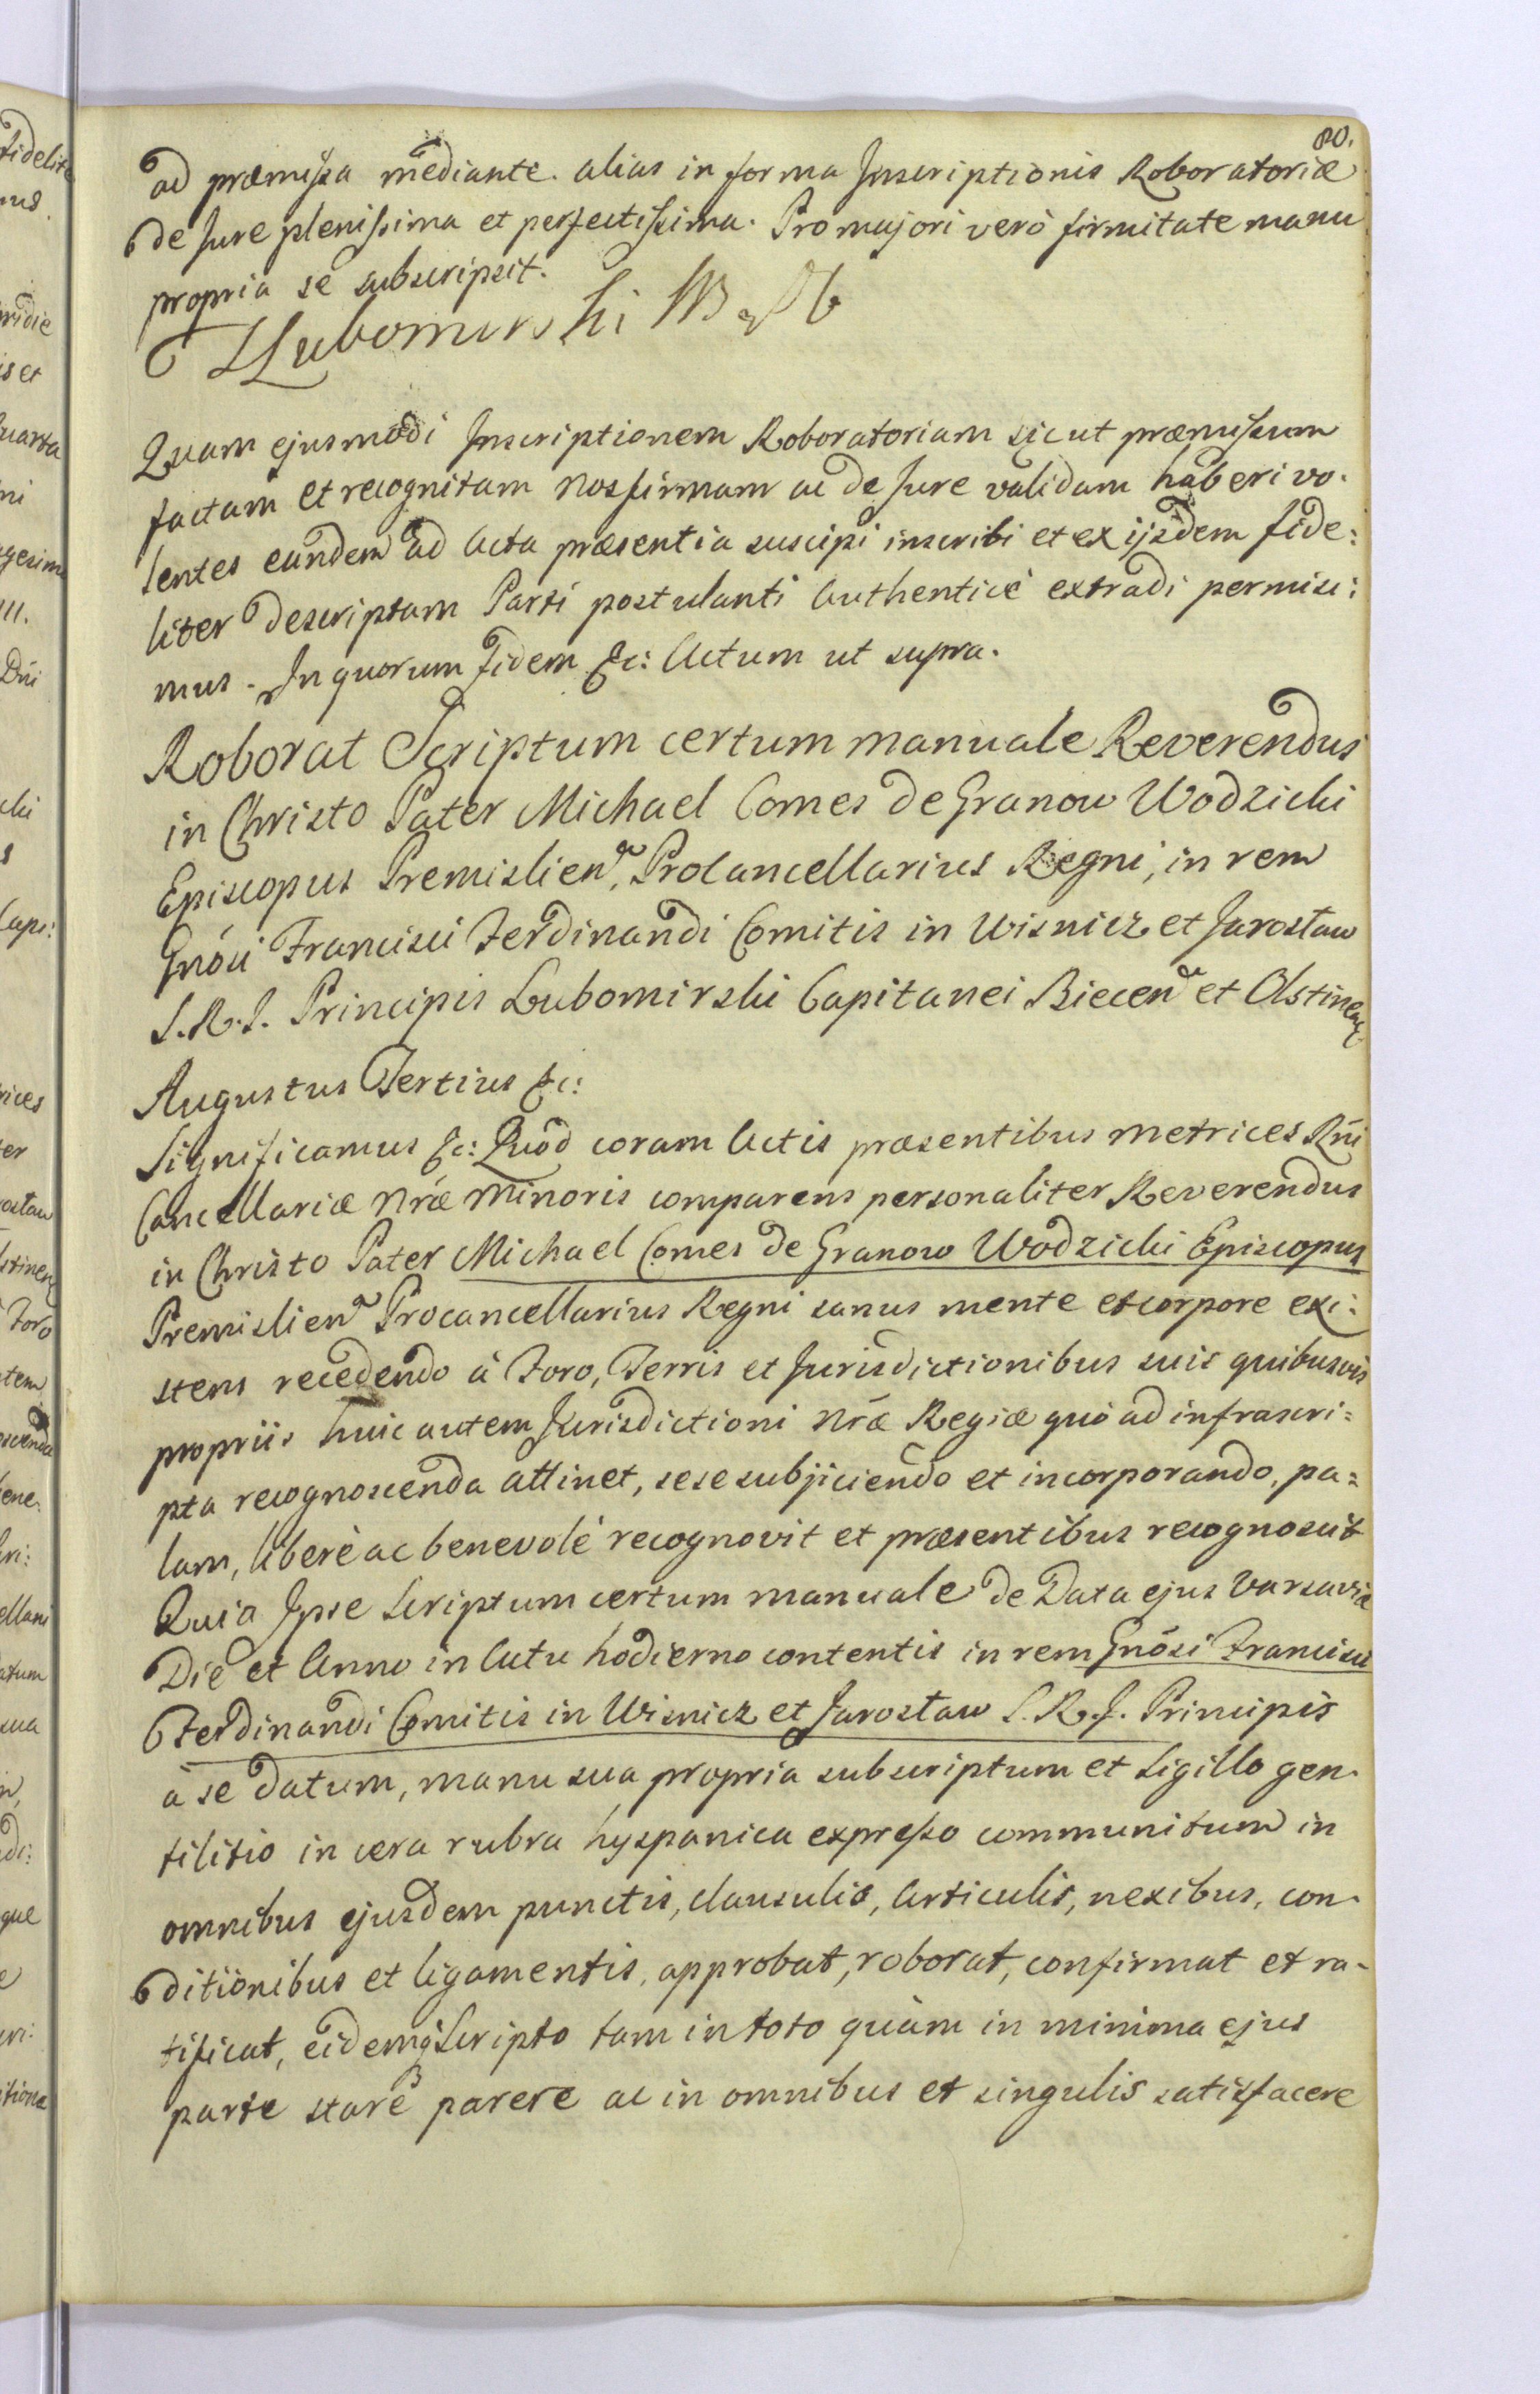 80.
ad præmissa mediante. alias in forma Inscriptionis Roboratoriæ
de Jure plenissima et perfectissima. Pro majori verò firmitate manu
propria se subscripsit.
Lubomirski
Quam ejusmodi Inscriptionem Roboratoriam sicut præmissum
factam et recognitam nos firmam ac de Jure validam haberi vo-
lentes eandem ad Acta præsentia suscipi inscribi et ex ijsdem fide:
liter descriptam Parti postulanti Authenticè extradi permisi:
mus. In quorum fidem &c: Actum ut supra.
Roborat Scriptum certum manuale Reverendus
in Christo Pater Michael Comes de Granow Wodzicki
Episcopus Premislien, Procancellarius Regni, in rem
Gnósi Francisci Ferdinandi Comitis in Wisnicz et Jarosław
S.R.J. Principis Lubomirski Capitanei Biecen et Olstinen
Augustus Tertius &c:
Significamus &c: Quod coram Actis præsentibus Metrices Rni
Cancellariæ Nræ Minoris comparens personaliter Reverendus
in Christo Pater Michael Comes de Granow Wodzicki Episcopus
Premislien Procancellarius Regni sanus mente et corpore exi:
stens recedendo à Foro, Terris et Jurisdictionibus suis quibusvis
propriis huic autem Jurisdictioni Nræ Regiæ quò ad infrascri=
pta recognoscenda attinet, sese subjiciendo et incorporando, pa=
lam, liberè ac benevolè recognovit et præsentibus recognoscit
Quia Ipse Scriptum certum manuale de Data ejus Varsaviæ
Die et Anno in Actu hodierno contentis in rem Gnósi Francisci
Ferdinandi Comitis in Wisnicz et Jarosław S.R.J. Principis
à se datum, manu sua propria subscriptum et Sigillo gen-
tilitio in cera rubra hyspanica expresso communitum in
omnibus ejusdem punctis, clausulis, Articulis, nexibus, con-
ditionibus et ligamentis, approbat, roborat, confirmat et ra-
tificat, eidemq Scripto tam in toto quàm in minima ejus
parte stare parere ac in omnibus et singulis satisfacere